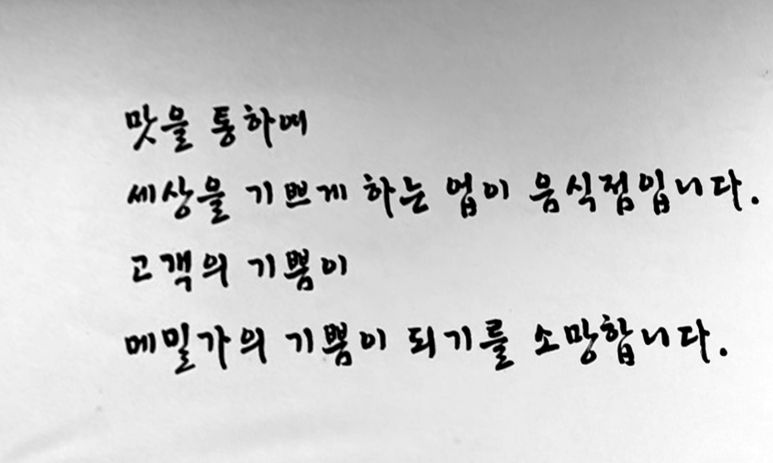 맛을 통하여
세상을 기쁘게 하는 업이 음식점입니다.
고객의 기쁨이
메밀가의 기쁨이 되기를 소망합니다.